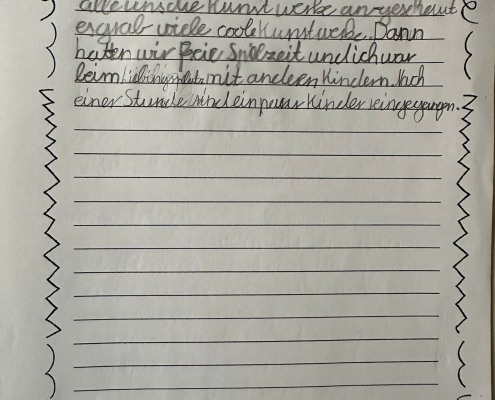 alle unsche Kunst werke an geschaut
es grab viele coole Kunstwerke. Dann
hatten wir freie Spilzeit und ich war
beim Lieblingsplatz mit anderen Kindern. Nach
einer Stunde sind ein paar Kinder reingegangen.